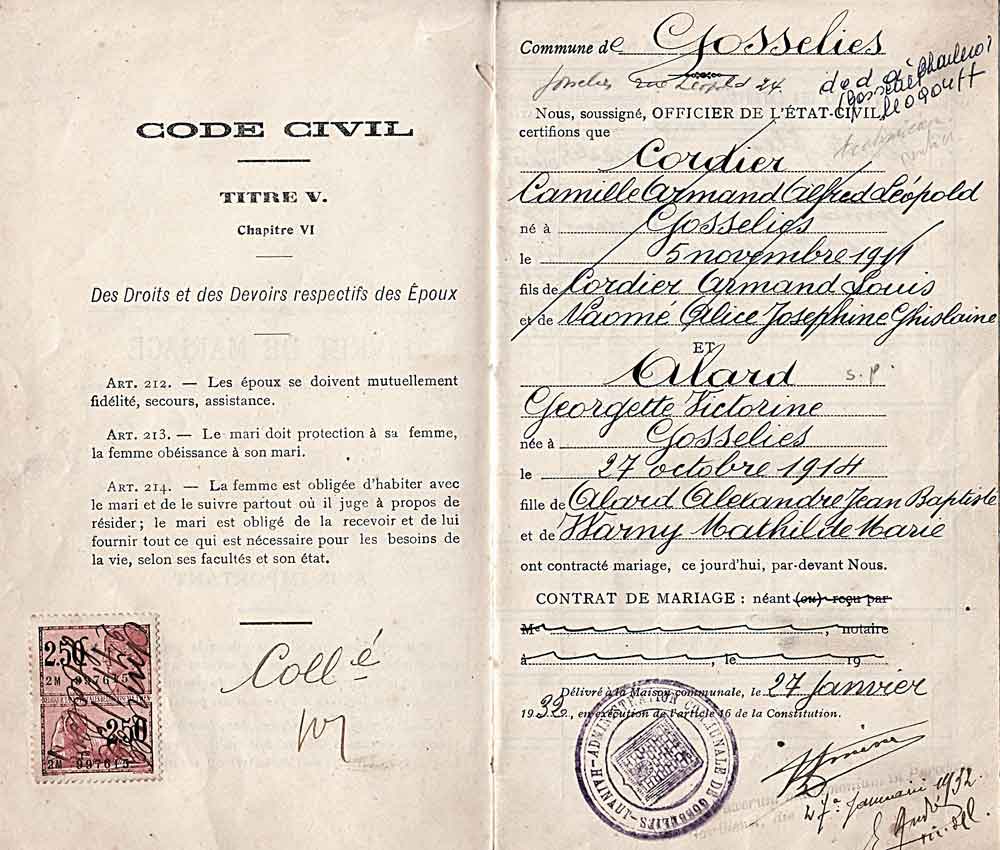 CODE CIVIL
TITRE V.
Chapitre VI
Des Droits et des Devoirs respectifs des Époux
ART. 212. — Les époux se doivent mutuellement
fidélité, secours, assistance.
ART. 213. — Le mari doit protection à sa femme,
la femme obéissance à son mari.
ART. 214. — La femme est obligée d'habiter avec
le mari et de le suivre partout où il juge à propos de
résider; le mari est obligé de la recevoir et de lui
fournir tout ce qui est nécessaire pour les besoins de
la vie, selon ses facultés et son état.
2.50
2M 997615
2.50
2M 997615
Collé
Commune de Gosselies
Gosselies rue Léopold 24
déd. à
Nous, soussigné, OFFICIER DE L'ÉTAT-CIVIL,
certifions que
Cordier
Camille Armand Alfred Léopold
né à Gosselies
le 5 novembre 1911
fils de Cordier Armand Louis
et de Naomé Alice Josephine Ghislaine
ET
Alard s.p.
Georgette Victorine
née à Gosselies
le 27 octobre 1914
fille de Alard Alexandre Jean Baptiste
et de Warny Mathilde Marie
ont contracté mariage, ce jourd'hui, par-devant Nous.
CONTRAT DE MARIAGE : néant (ou) reçu par
Me , notaire
à , le 19
Délivré à la Maison communale, le 27 Janvier
1932, en exécution de l'article 16 de la Constitution.
ADMINISTRATION COMMUNALE DE GOSSELIES
HAINAUT
27 Januarii 1932.